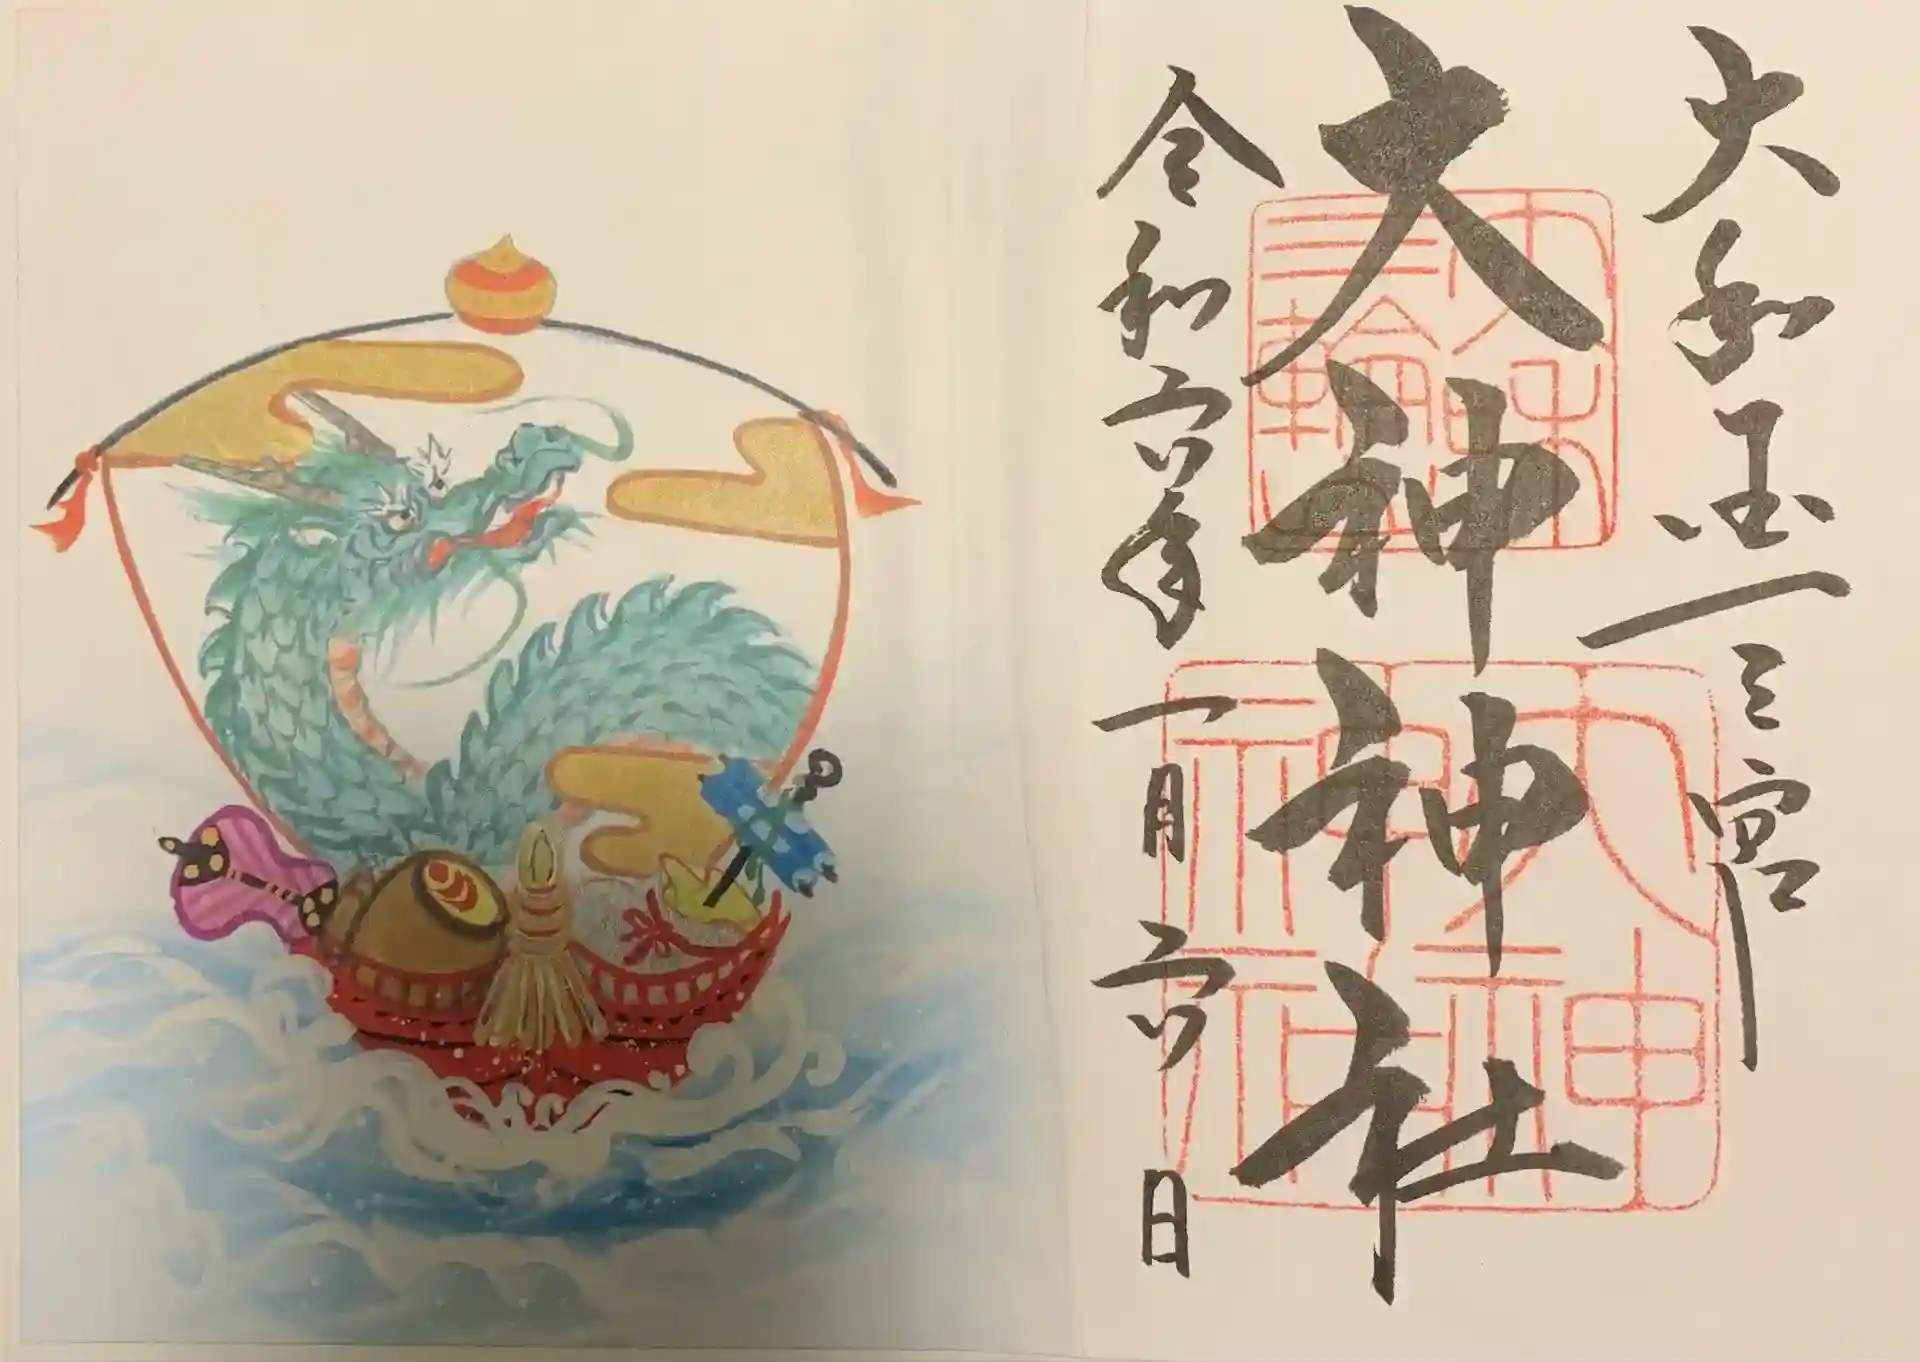 大和国一之宮
大神神社
大神神社
令和六年一月六日